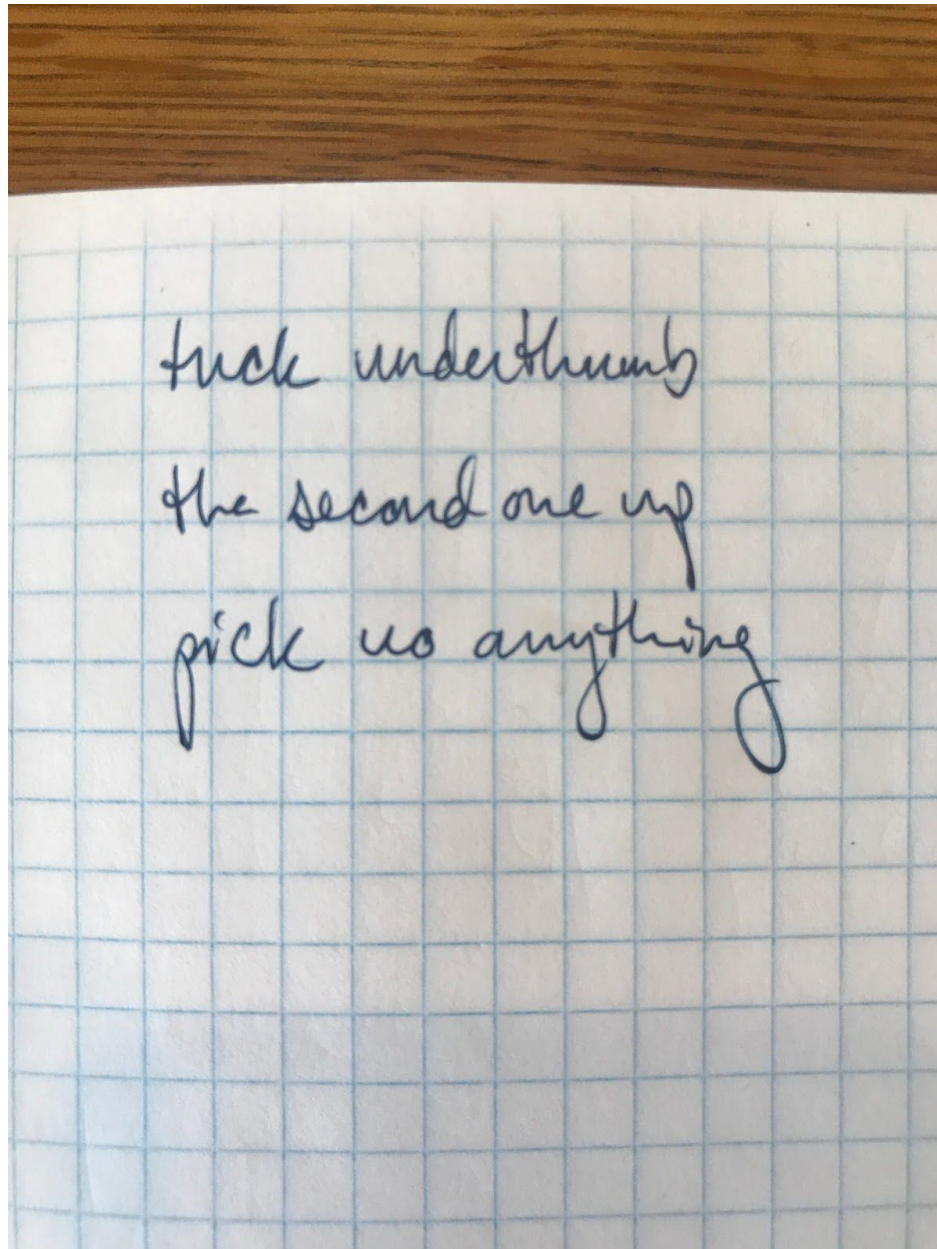 tuck underthumb
the second one up
pick uo anything